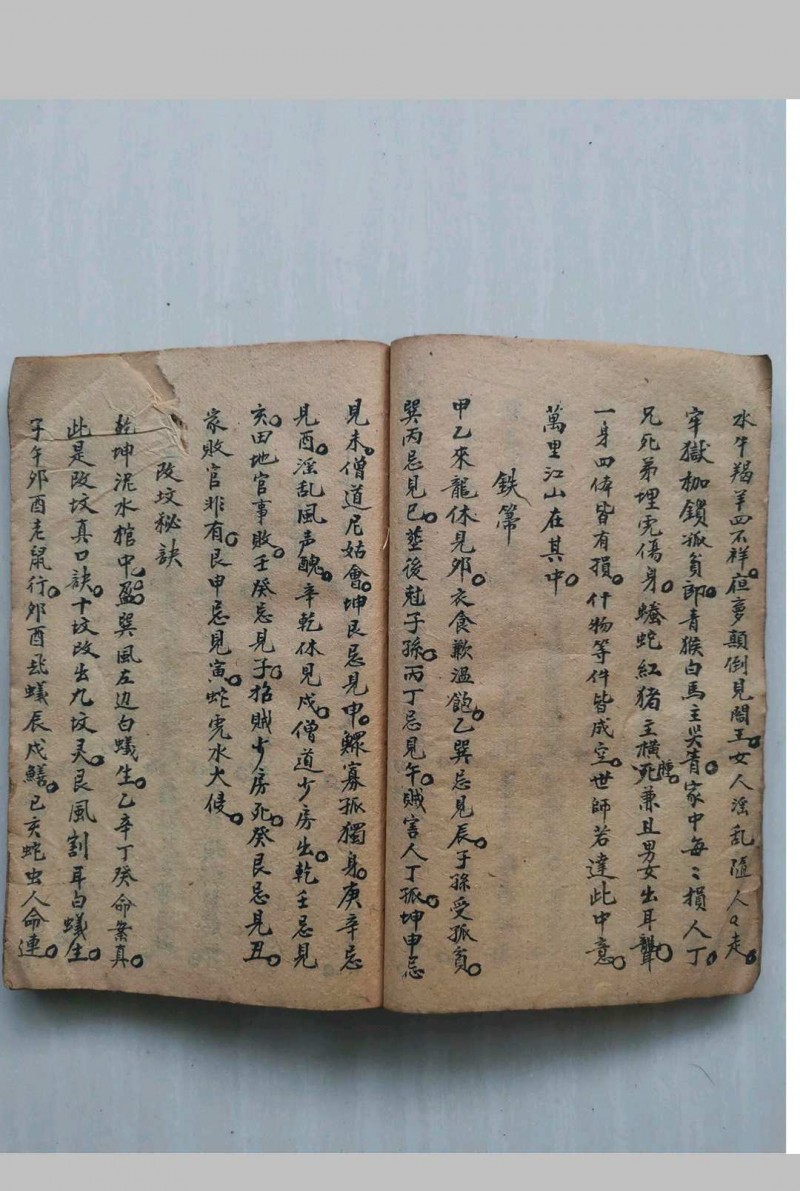 水牛羯羊四不祥。夢顛倒見閻王。女人淫乱隨人々走。
牢獄枷鎖孤貧即。青猴白馬主哭青。家中每々損人丁。
兄死弟埋虎傷身。蟠蛇紅猪主橫死腫。兼且男女出耳聾。
一身四体皆有損。什物等件皆成空。世師若達此中意。
萬里江山在其中。
鉄箒
甲乙來龍休見夘。衣食歉溫飽。乙巽忌見辰。子孫受孤貧。
巽丙忌見巳。塟後尅子孫。丙丁忌見午。賊害人丁孤。坤申忌
見未。僧道尼姑會。坤艮忌見申。鰥寡孤獨身。庚辛忌
見酉。淫乱風声醜。辛乾休見戍。僧道少房出。乾壬忌見
亥。田地官事敗。壬癸忌見子。招賊少房死。癸艮忌見丑。
家敗官非有。艮申忌見寅。蛇虎水火侵。
改坟秘訣
乾坤泥水棺中盈。巽風左边白蟻生。乙辛丁癸命案真。
此是改坟真口訣。十坟改出九坟灵。艮風割耳白蟻生。
子午夘酉老鼠行。夘酉飛蟻辰戍鱔。巳亥蛇虫人命連。